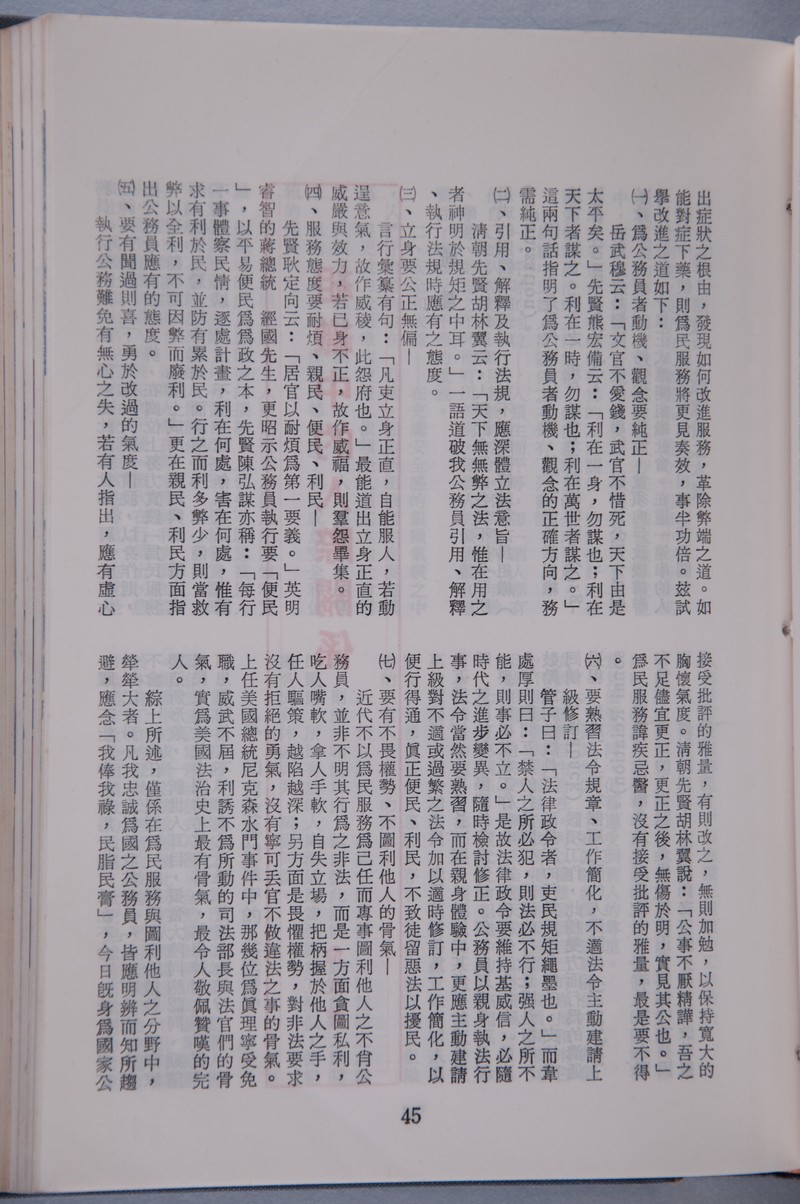 出症狀之根由，發現如何改進服務，革除弊端之道。如
能對症下藥，則爲民服務將更見奏效，事半功倍。玆試
舉改進之道如下：
㈠、爲公務員者動機、觀念要純正—
岳武穆云：「文官不愛錢，武官不惜死，天下由是
太平矣。」先賢熊宏備云：「利在一身，勿謀也；利在
天下者謀之。利在一時，勿謀也；利在萬世者謀之。」
這兩句話指明了爲公務員者動機、觀念的正確方向，務
需純正。
㈡、引用、解釋及執行法規，應深體立法意旨—
清朝先賢胡林翼云：「天下無無弊之法，惟在用之
者神明於規矩之中耳。」一語道破我公務員引用、解釋
、執行法規時應有之態度。
㈢、立身要公正無偏—
言行彙纂有句：「凡吏立身正直，自能服人，若動
逞意氣，故作威稜，此怨府也。」最能道出立身正直的
威嚴與效力，若已身不正，故作威福，則羣怨畢集。
㈣、服務態度要耐煩、親民、便民、利民—
先賢耿定向云：「居官以耐煩爲第一要義。」英明
睿智的蔣總統　經國先生，更昭示公務員執行要「便民
」，以平易便民爲爲政之本，先賢陳弘謀亦稱：「每行
一事體察民情，逐處計畫，利在何處，害在何處，惟有
求有利於民，並防有累於民。行之而利多弊少，則當救
弊以全利，不可因弊而廢利。」更在親民、利民方面指
出公務員應有的態度。
㈤、要有聞過則喜，勇於改過的氣度—
執行公務難免有無心之失，若有人指出，應有虛心
接受批評的雅量，有則改之，無則加勉，以保持寬大的
胸懷氣度。清朝先賢胡林翼說：「公事不厭精譁，吾之
不足儘宜更正，更正之後，無傷於明，實見其公也。」
爲民服務諱疾忌醫，沒有接受批評的雅量，最是要不得
。
㈥、要熟習法令規章、工作簡化，不適法令主動建請上
級修訂—
管子曰：「法律政令者，吏民規矩繩墨也。」而韋
處厚則曰：「禁人之所必犯，則法必不行；强人之所不
能，則事必不立。」是故法律政令要維持基威信，必隨
時代之進步變異，隨時檢討修正。公務員以親身執法行
事，法令當然要熟習，而在親身體驗中，更應主動建請
上級對不適或過繁之法令加以適時修訂，工作簡化，以
便行得通，眞正便民、利民，不致徒留惡法以擾民。
㈦、要有不畏權勢、不圖利他人的骨氣—
近代不以爲民服務爲己任而專事圖利他人之不肖公
務員，並非不明其行爲之非法，而是一方面貪圖私利，
吃人嘴軟，拿人手軟，自失立場，把柄握於他人之手，
任人驅策，越陷越深；另方面是畏懼權勢，對非法要求
沒有拒絕的勇氣，沒有寧可丟官不做違法之事的骨氣。
上任美國總統尼克森水門事件中，那幾位爲眞理寧受免
職，威武不屈，利誘不爲所動的司法部長與法官們的骨
氣，實爲美國法治史上最有骨氣，最令人敬佩贊嘆的完
人。
綜上所述，僅係在爲民服務與圖利他人之分野中，
犖犖大者。凡我忠誠爲國之公務員，皆應明辨而知所趨
避，應念「我俸我祿，民脂民膏」，今日旣身爲國家公
45